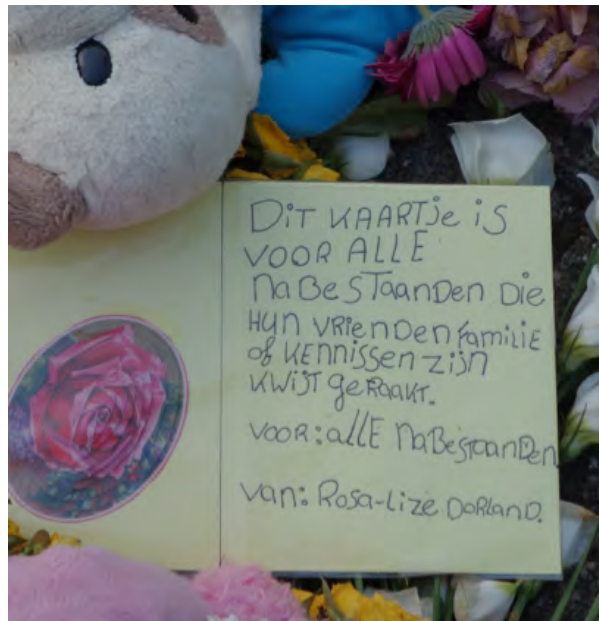 DiT KAARTje iS
VOOR ALLE
NaBeSTaanDen Die
HUn VRienDen familie
of KENNISSEN zijn
KWijT geRaaKT.
VOOR: allE NaBeSTaanDen
van: Rosa-Lize DoRLanD.